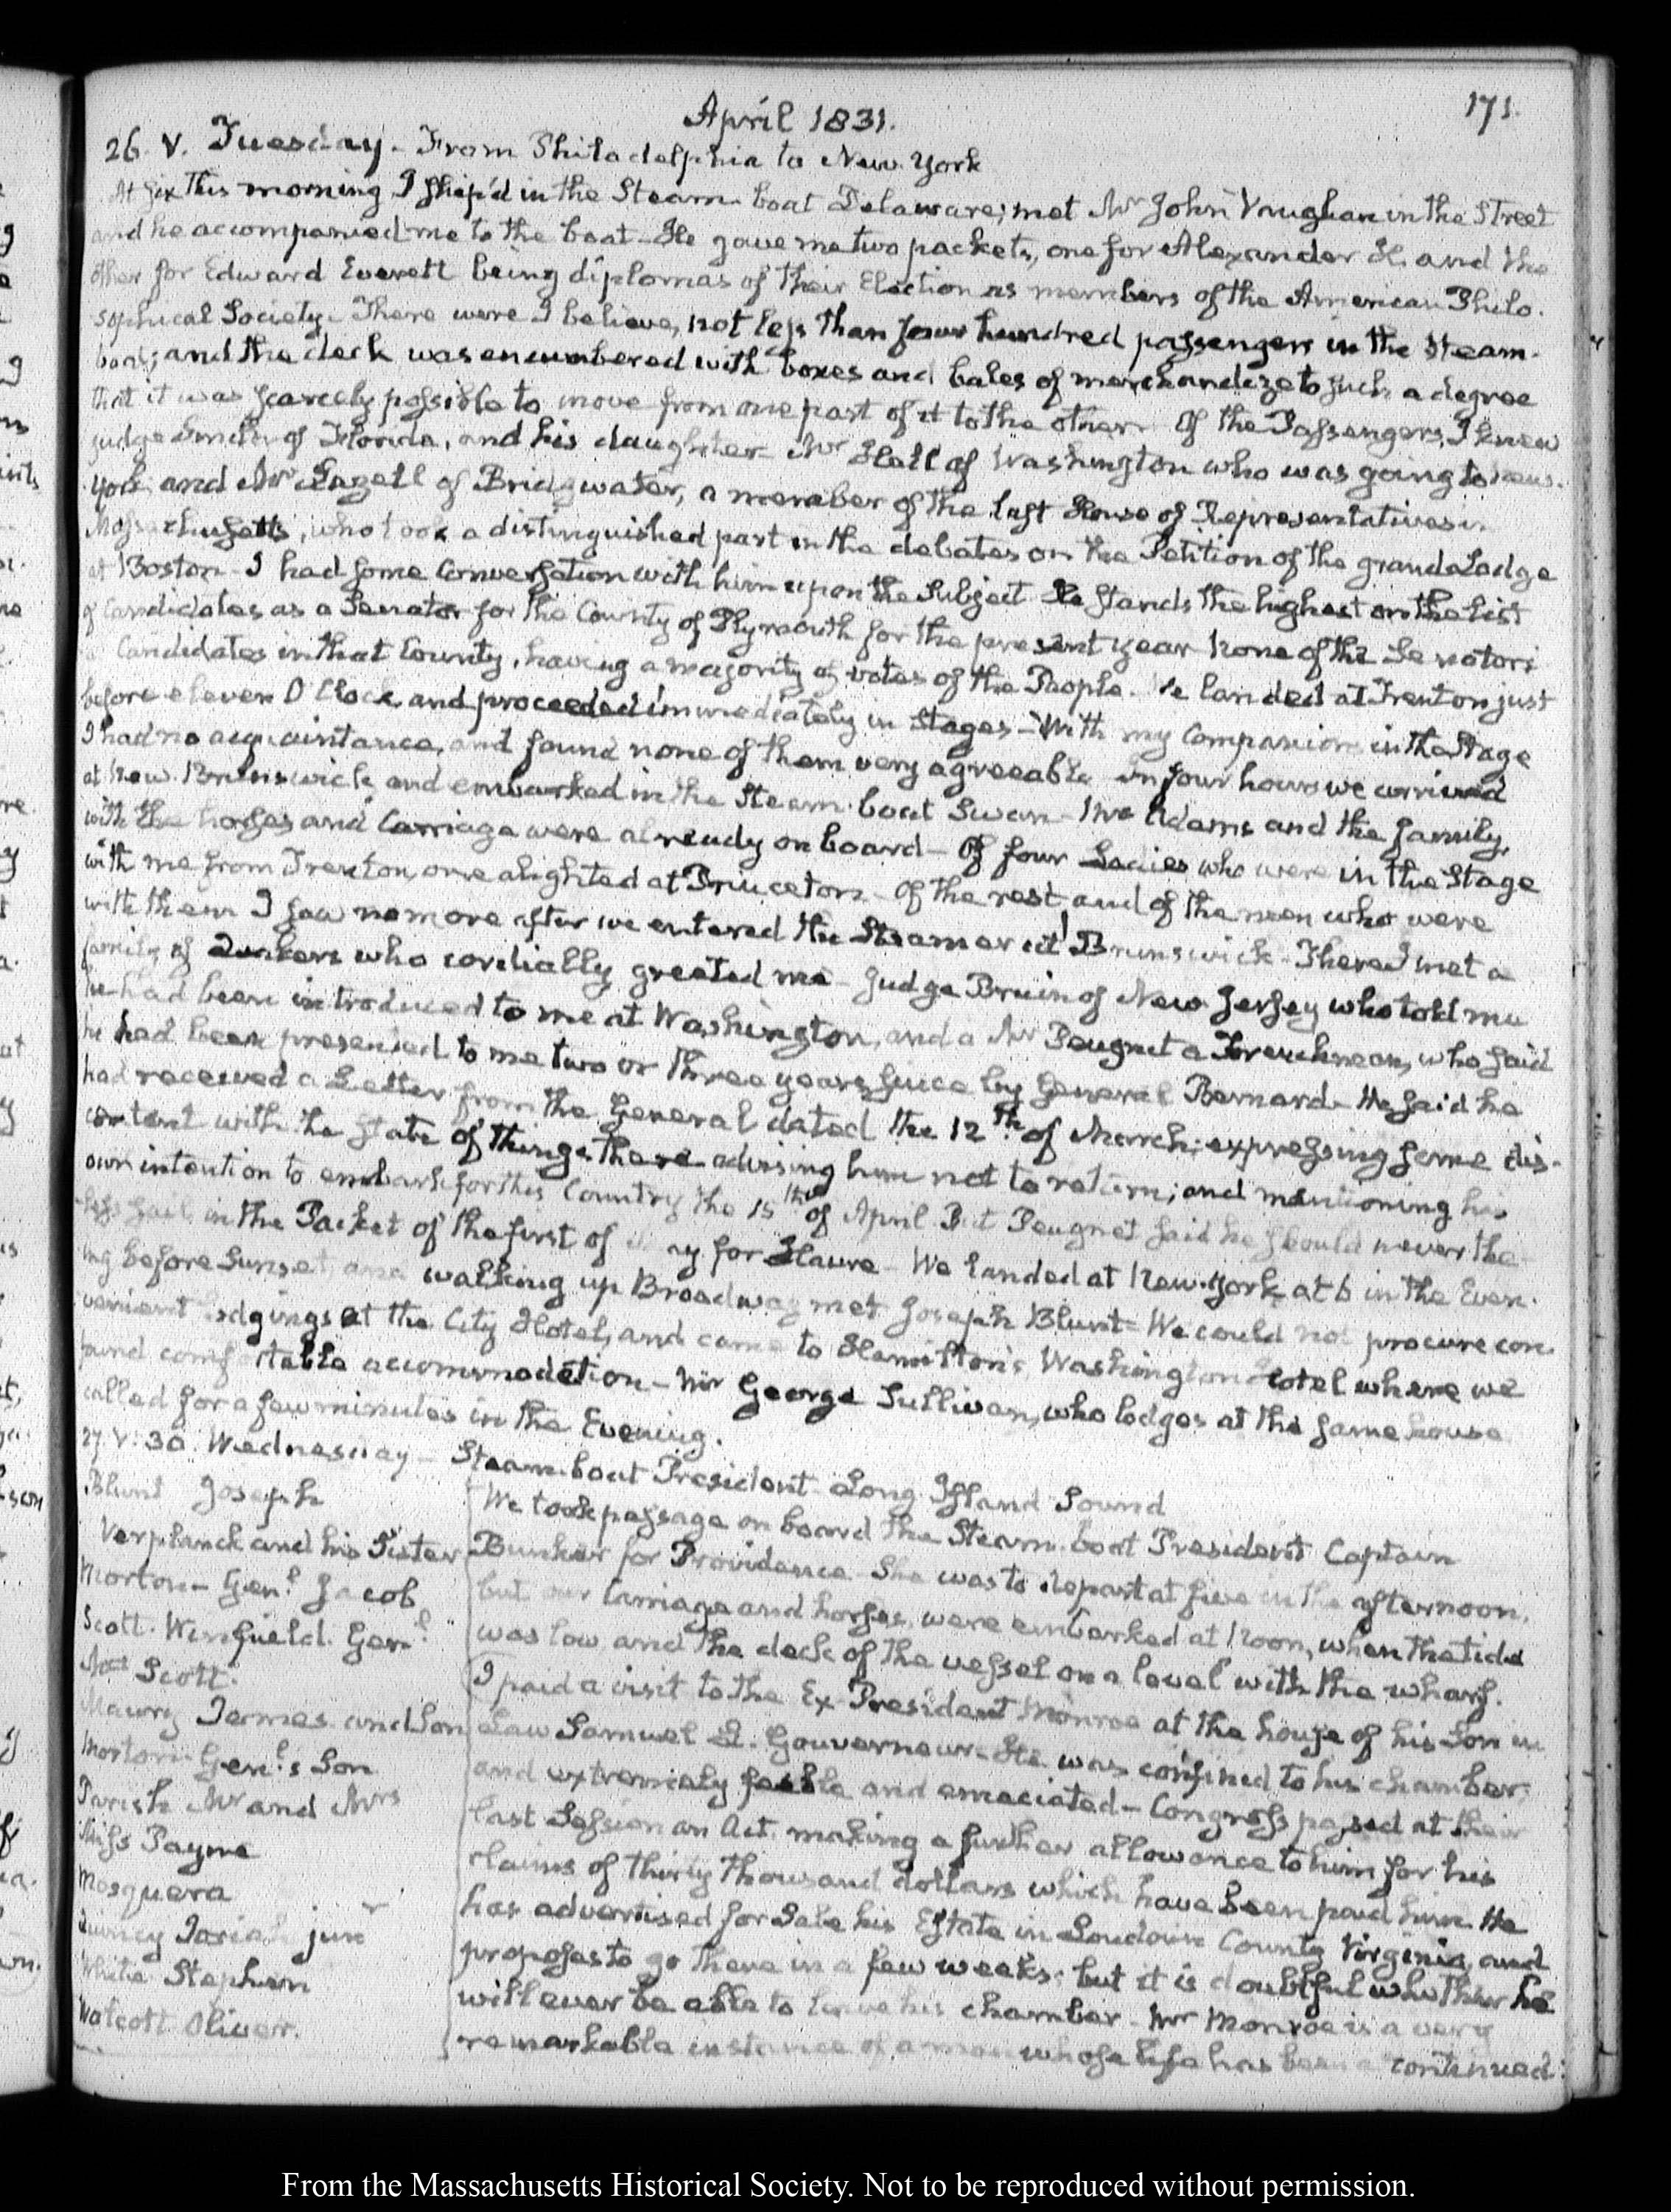 April 1831.
171.
26. V. Tuesday - From Philadelphia to New York
At six this morning I ship'd in the Steam-boat Delaware; met Mr John Vaughan in the Street
and he accompanied me to the boat - He gave me two packets, one for Alexander H. and the
other for Edward Everett being diplomas of their Election as members of the American Philo-
sophical Society - There were I believe, not less than four hundred passengers in the Steam-
boat; and the deck was encumbered with boxes and bales of merchandize to such a degree
that it was scarcely possible to move from one part of it to the other. Of the Passengers, I knew
judge Smith of Florida, and his daughter - Mr Hall of Washington who was going to New-
York and Mr Lazell of Bridgwater, a member of the last House of Representatives in
Massachusetts, who took a distinguished part in the debates on the Petition of the grand Lodge
at Boston - I had some Conversation with him upon the Subject He stands the highest on the list
of Candidates as a Senator for the County of Plymouth for the present year none of the Senatori
al Candidates in that County, having a majority of votes of the People. We landed at Trenton just
before eleven O'Clock, and proceeded immediately in Stages - With my Companions in the Stage
I had no acquaintance, and found none of them very agreeable In four hours we arrived
at New-Brunswick and embarked in the Steam-boat Swan - Mrs Adams and the family,
with the horses and Carriage were already on board - Of four Ladies who were in the Stage
with me from Trenton, one alighted at Princeton - Of the rest and of the men who were
with them I saw no more after we entered the Steamer at Brunswick - There I met a
family of Quakers who cordially greeted me - Judge Bruin of New Jersey who told me
he had been introduced to me at Washington, and a Mr Peugnet a Frenchman, who said
he had been presented to me two or three years since by General Bernard - He said he
had received a Letter from the General dated the 12th of March; expressing some dis-
content with the state of things there advising him not to return; and mentioning his
own intention to embark for this Country the 15th of April But Peugnet said he should never the-
less sail in the Packet of the first of May for Havre - We landed at New-York at 6 in the Even-
ing before Sunset, and walking up Broadway met Joseph Blunt - We could not procure con-
venient lodgings at the City Hotel, and came to Hamilton's, Washington Hotel where we
found comfortable accommodation - Mr George Sullivan, who lodges at the same house
called for a few minutes in the Evening.
27. V: 30. Wednesday - Steam-boat President - Long Island Sound
Blunt Joseph
Verplanck and his Sister
Morton - Genl Jacob
Scott. Winfield. Genl
Mrs Scott.
Maury James and Son
Morton - Genl's Son
Parish Mr and Mrs
Miss Payne
Mosquera
Quincy Josiah junr
White Stephen
Wolcott Oliver.
We took passage on board the Steam-boat President Captain
Bunker for Providence - She was to depart at five in the afternoon,
but our Carriage and horses, were embarked at Noon, when the tide
was low, and the deck of the vessel on a level with the wharf.
I paid a visit to the Ex-President Monroe at the house of his Son in
Law Samuel L. Gouverneur - He was confined to his chamber;
and extremely feeble and emaciated - Congress passed at their
last Session an Act making a further allowance to him for his
claims of thirty thousand dollars which have been paid him. He
has advertised for Sale his Estate in Loudoun County Virginia, and
proposes to go there in a few weeks; but it is doubtful whether he
will ever be able to leave his chamber - Mr Monroe is a very
remarkable instance of a man whose life has been a continued
From the Massachusetts Historical Society. Not to be reproduced without permission.